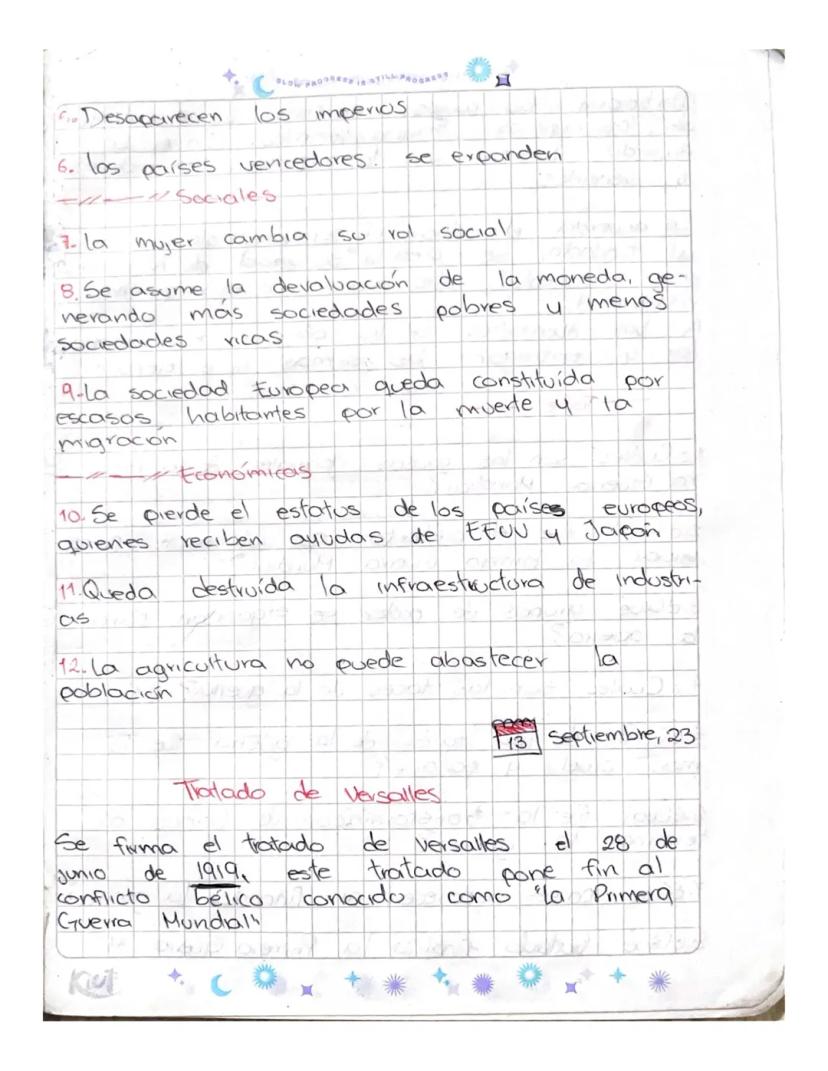 SLOW PROGRESS IS STILL PROGRESS
Desaparecen los imperios
6. los países vencedores se expanden
—//—// Sociales
7. la mujer cambia su rol social
8. Se asume la devaluación de la moneda, ge-
nerando más sociedades pobres y menos
sociedades ricas
9-la sociedad Europea queda constituída por
escasos habitantes por la muerte y la
migración
—//—// Económicas
10. Se pierde el estatus de los países europeos,
quienes reciben ayudas de EEUU y Japón
11. Queda destruída la infraestructura de industri-
as
12. la agricultura no puede abastecer la
población
13 septiembre, 23
Tratado de Versalles
Se firma el tratado de versalles el 28 de
junio de 1919, este tratado pone fin al
conflicto bélico conocido como "la Primera
Guerra Mundial"
Kiut